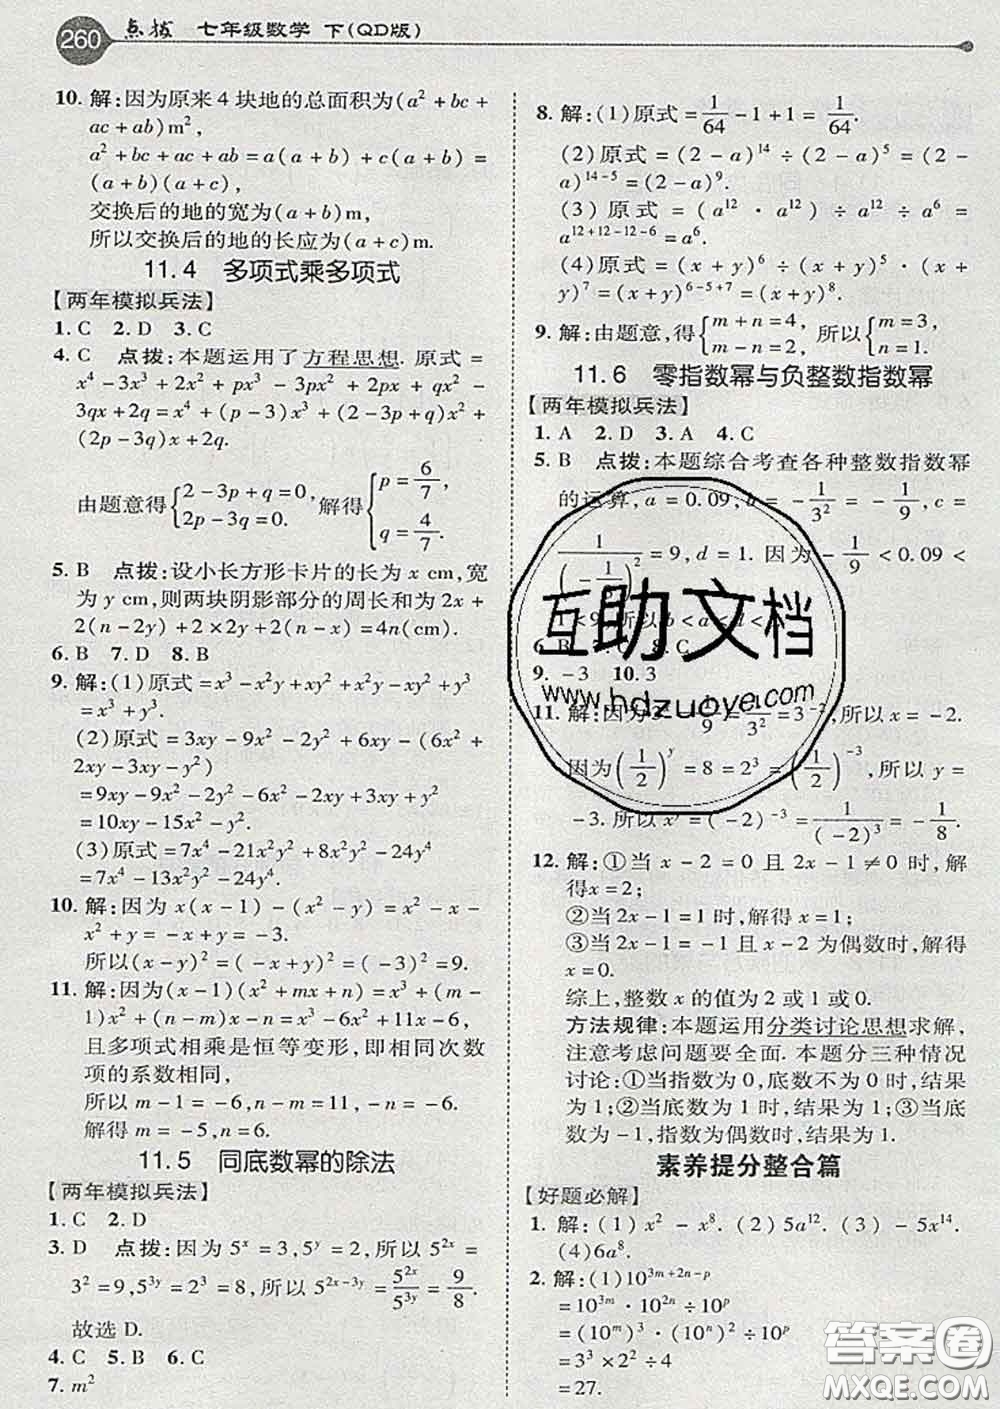 260 点拨 七年级数学 下(QD版)
10. 解:因为原来4块地的总面积为(a² + bc +
ac + ab)m²,
a² + bc + ac + ab = a(a + b) + c(a + b) =
(a+b)(a+c),
交换后的地的宽为(a+b)m,
所以交换后的地的长应为(a+c)m.
11.4 多项式乘多项式
【两年模拟兵法】
1. C 2. D 3. C
4. C 点拨:本题运用了方程思想. 原式 =
x⁴ - 3x³ + 2x² + px³ - 3px² + 2px + qx² -
3qx + 2q = x⁴ + (p - 3)x³ + (2 - 3p + q)x² +
(2p - 3q)x + 2q.
由题意得{2 - 3p + q = 0, 2p - 3q = 0. 解得{p = 6/7, q = 4/7.
5. B 点拨:设小长方形卡片的长为 x cm,宽
为 y cm,则两块阴影部分的周长和为2x +
2(n - 2y) + 2×2y + 2(n - x) = 4n(cm).
6. B 7. D 8. B
9. 解:(1)原式 = x³ - x²y + xy² + x²y - xy² + y³
= x³ + y³.
(2)原式 = 3xy - 9x² - 2y² + 6xy - (6x² +
2xy - 3xy - y²)
= 9xy - 9x² - 2y² - 6x² - 2xy + 3xy + y²
= 10xy - 15x² - y².
(3)原式 = 7x⁴ - 21x²y² + 8x²y² - 24y⁴
= 7x⁴ - 13x²y² - 24y⁴.
10. 解:因为 x(x - 1) - (x² - y) = x² - x -
x² + y = -x + y = -3.
所以(x - y)² = (-x + y)² = (-3)² = 9.
11. 解:因为(x - 1)(x² + mx + n) = x³ + (m -
1)x² + (n - m)x - n = x³ - 6x² + 11x - 6,
且多项式相乘是恒等变形,即相同次数
项的系数相同,
所以 m - 1 = -6, n - m = 11, -n = -6.
解得 m = -5, n = 6.
11.5 同底数幂的除法
【两年模拟兵法】
1. C 2. D
3. D 点拨:因为5ˣ = 3, 5ʸ = 2, 所以 5²ˣ =
3² = 9, 5³ʸ = 2³ = 8, 所以 5²ˣ⁻³ʸ = 5²ˣ/5³ʸ = 9/8.
故选 D.
4. C 5. B 6. C
7. m²
8. 解:(1)原式 = 1/64 - 1 + 1 = 1/64.
(2)原式 = (2 - a)¹⁴ ÷ (2 - a)⁵ = (2 -
a)¹⁴⁻⁵ = (2 - a)⁹.
(3)原式 = (a¹² · a¹²) ÷ a¹² ÷ a⁶ =
a¹²⁺¹²⁻¹²⁻⁶ = a⁶.
(4)原式 = (x + y)⁶ ÷ (x + y)⁵ · (x +
y)⁷ = (x + y)⁶⁻⁵⁺⁷ = (x + y)⁸.
9. 解:由题意,得{m + n = 4, m - n = 2. 所以{m = 3, n = 1.
11.6 零指数幂与负整数指数幂
【两年模拟兵法】
1. A 2. D 3. A 4. C
5. B 点拨:本题综合考查各种整数指数幂
的运算, a = 0.09, b = -1/3² = -1/9, c =
1/(-1/3)² = 9, d = 1. 因为 -1/9 < 0.09 <
1 < 9, 所以 b < a < d <
6. B 7. C 8. C
9. -3 10. 3
11. 解:因为 3ˣ = 1/9 = 1/3² = 3⁻², 所以 x = -2.
因为(1/2)ʸ = 8 = 2³ = (1/2)⁻³, 所以 y =
-3. 所以 xʸ = (-2)⁻³ = 1/(-2)³ = -1/8.
12. 解:①当 x - 2 = 0 且 2x - 1 ≠ 0 时,解
得 x = 2;
②当 2x - 1 = 1 时,解得 x = 1;
③当 2x - 1 = -1 且 x - 2 为偶数时,解得
x = 0.
综上,整数 x 的值为 2 或 1 或 0.
方法规律:本题运用分类讨论思想求解,
注意考虑问题要全面. 本题分三种情况
讨论:①当指数为0,底数不为0时,结果
为1;②当底数为1时,结果为1;③当底
数为-1,指数为偶数时,结果为1.
素养提分整合篇
【好题必解】
1. 解:(1) x² - x⁸. (2) 5a¹². (3) -5x¹⁴.
(4) 6a⁸.
2. 解:(1) 10³ᵐ⁺²ⁿ⁻ᵖ
= 10³ᵐ · 10²ⁿ ÷ 10ᵖ
= (10ᵐ)³ · (10ⁿ)² ÷ 10ᵖ
= 3³ × 2² ÷ 4
= 27.
互助文档
www.hdzuoye.com
答案圈
MXQE.COM